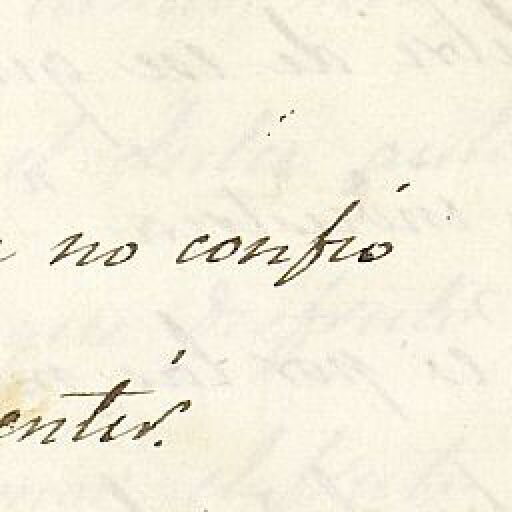 no confio
entir.